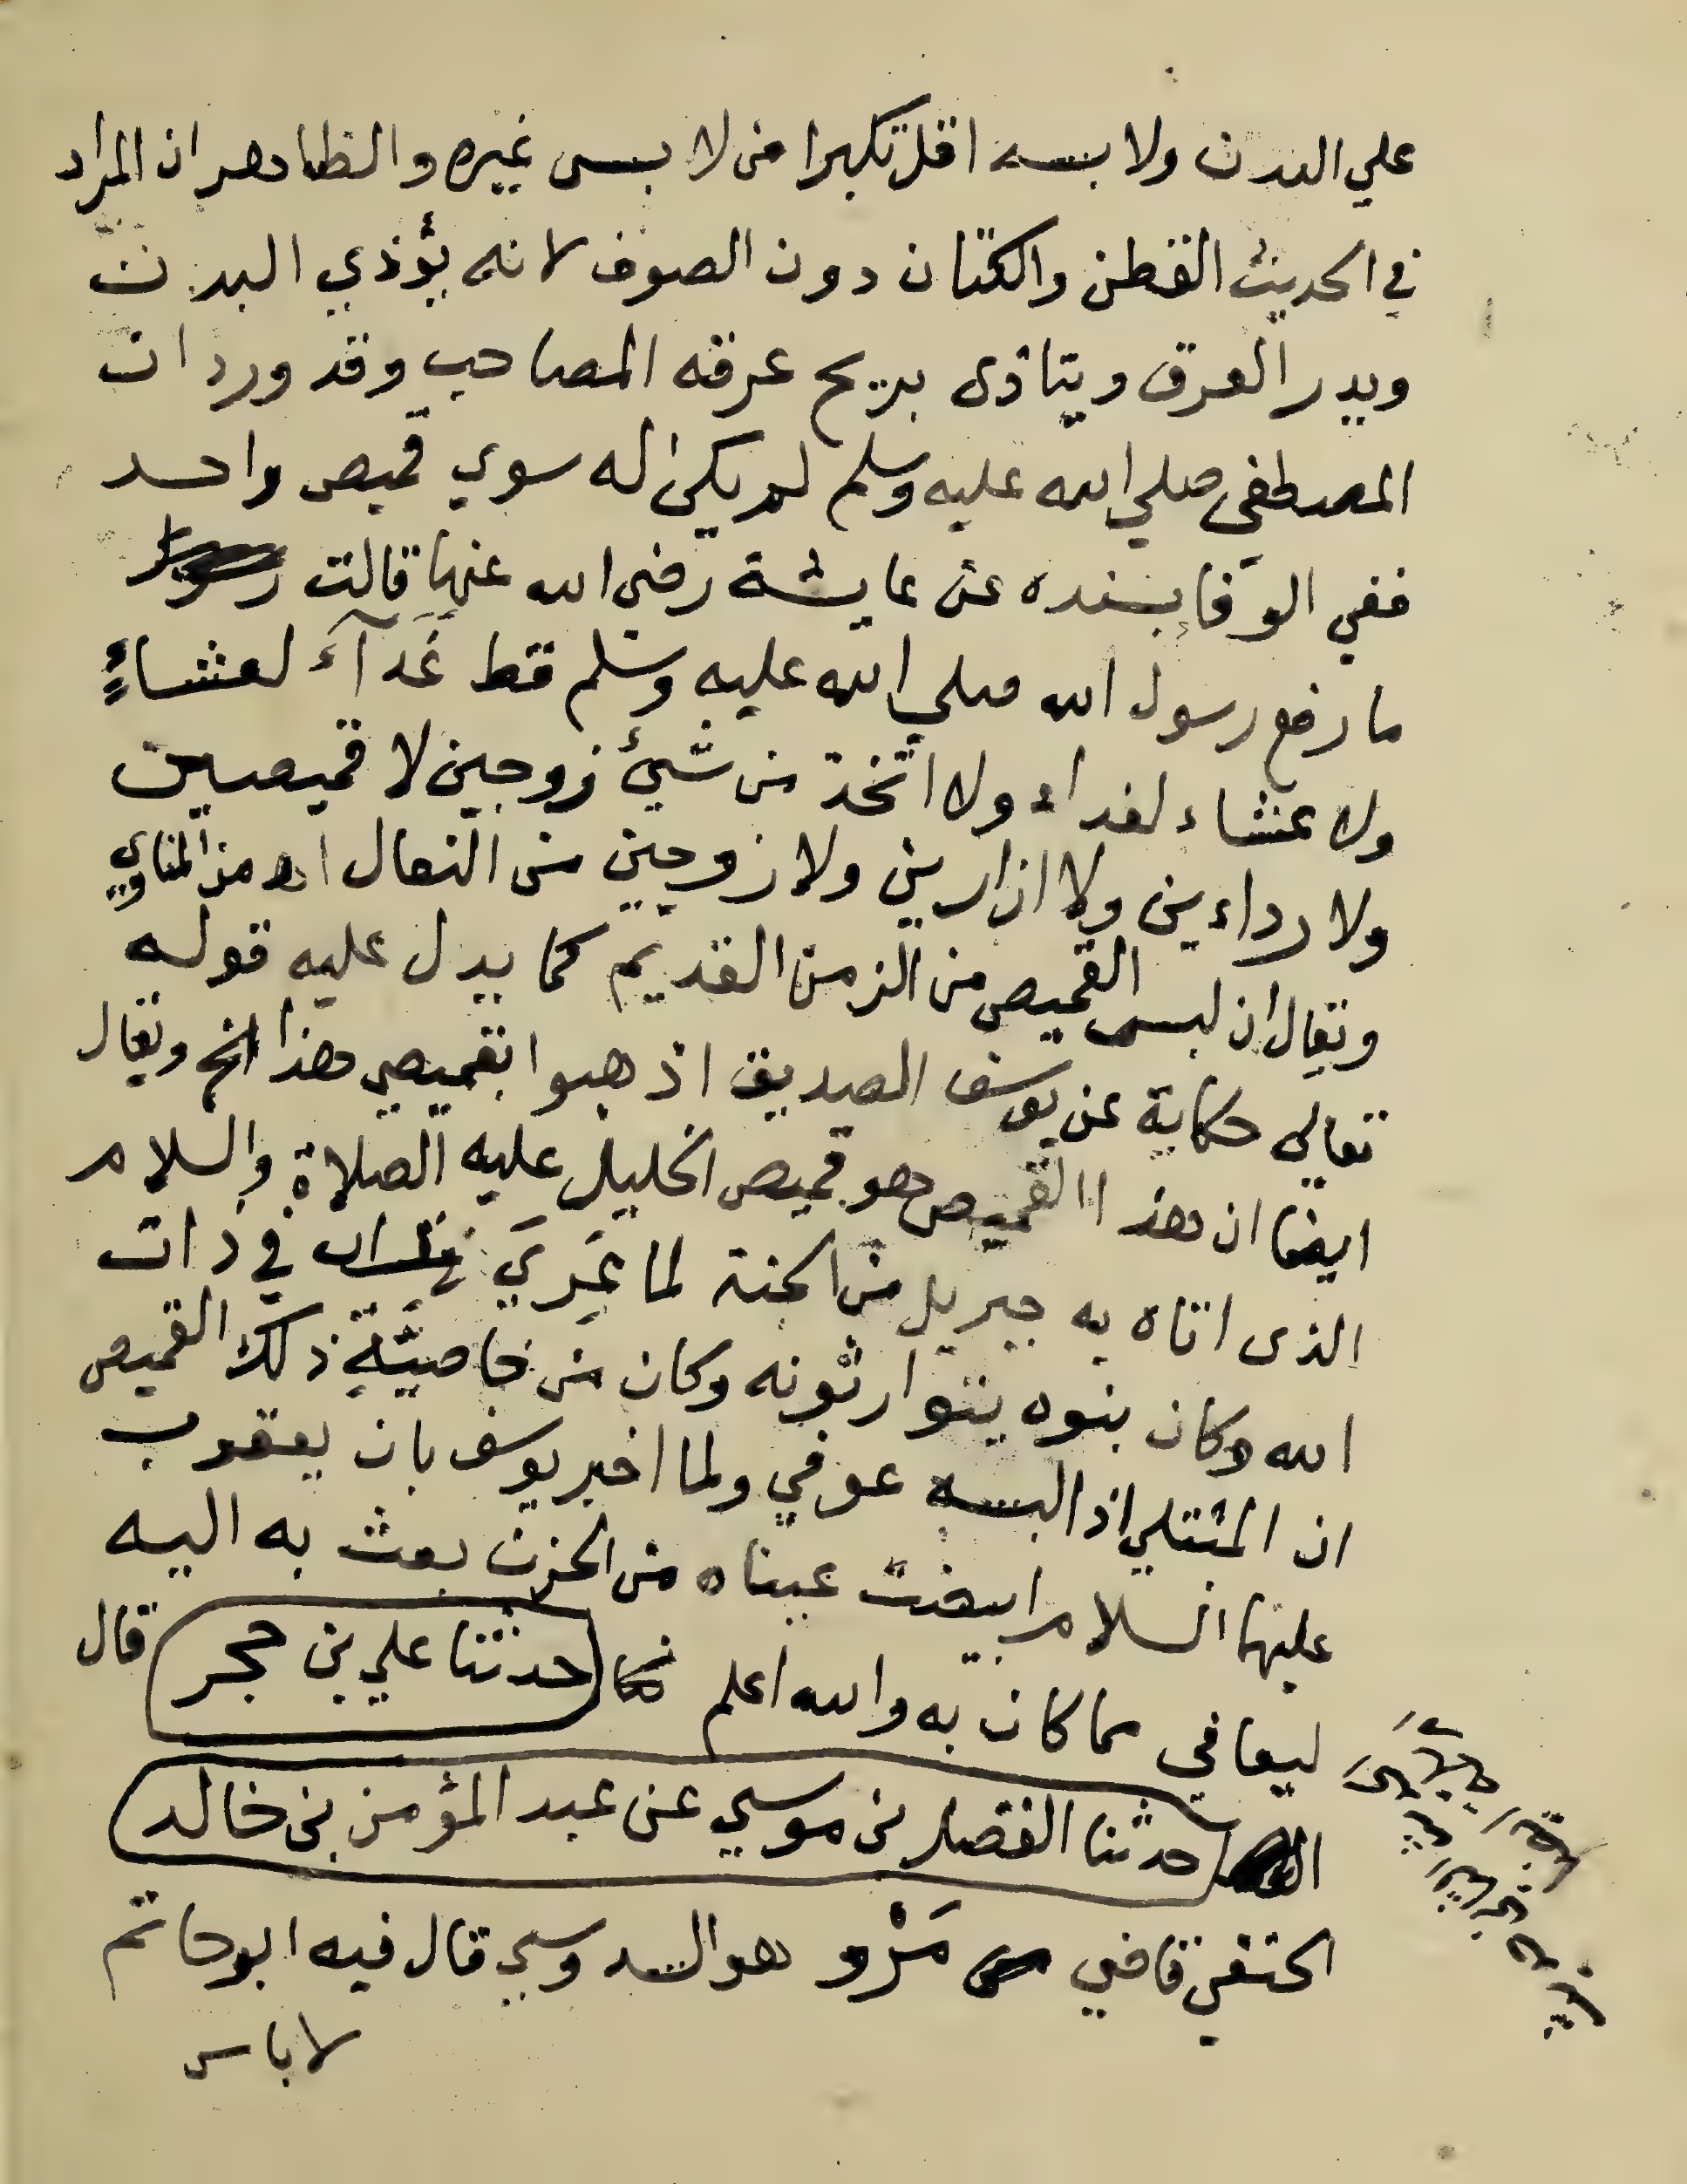 علي البدن ولابسه اقل تكبرا من لابس غيره والظاهر ان المراد
في الحديث القطن والكتان دون الصوف لانه يؤذي البدن
ويدر العرق ويتاذى بريح عرقه المصاحب وقد ورد ان
المصطفى صلي الله عليه وسلم لم يكن له سوي قميص واحد
ففي الوفا بسنده عن عايشة رضى الله عنها قالت
ما رفع رسول الله صلي الله عليه وسلم قط غَدآءً لعشاءٍ
ولا عشاء لغداء ولا اتخذ من شيئ زوجين لا قميصين
ولا رداءين ولا ازارين ولا زوجين من النعال اه من المناوي
ويقال ان لبس القميص من الزمن القديم كما يدل عليه قوله
تعالي حكاية عن يوسف الصديق اذهبوا بقميصي هذا الخ ويقال
ايضا ان هذا القميص هو قميص الخليل عليه الصلاة والسلام
الذى اتاه به جبريل من الجنة لما عَرِيَ في ذات
الله وكان بنوه يتوارثونه وكان من خاصيَّةِ ذلك القميص
ان المبتلي اذا لبسه عوفي ولما اخبر يوسف بان يعقوب
عليهما السلام ابيضت عيناه من الحزن بعث به اليه
ليعافي مما كان به والله اعلم حدثنا علي بن حجر قال
حدثنا الفضل بن موسي عن عبد المؤمن بن خالد
الحنفي قاضي مَرْو هو السدوسي قال فيه ابو حاتم
لا باس